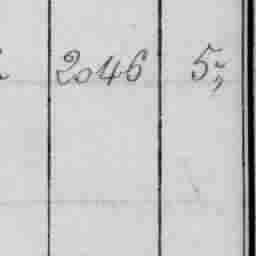 2046 5;